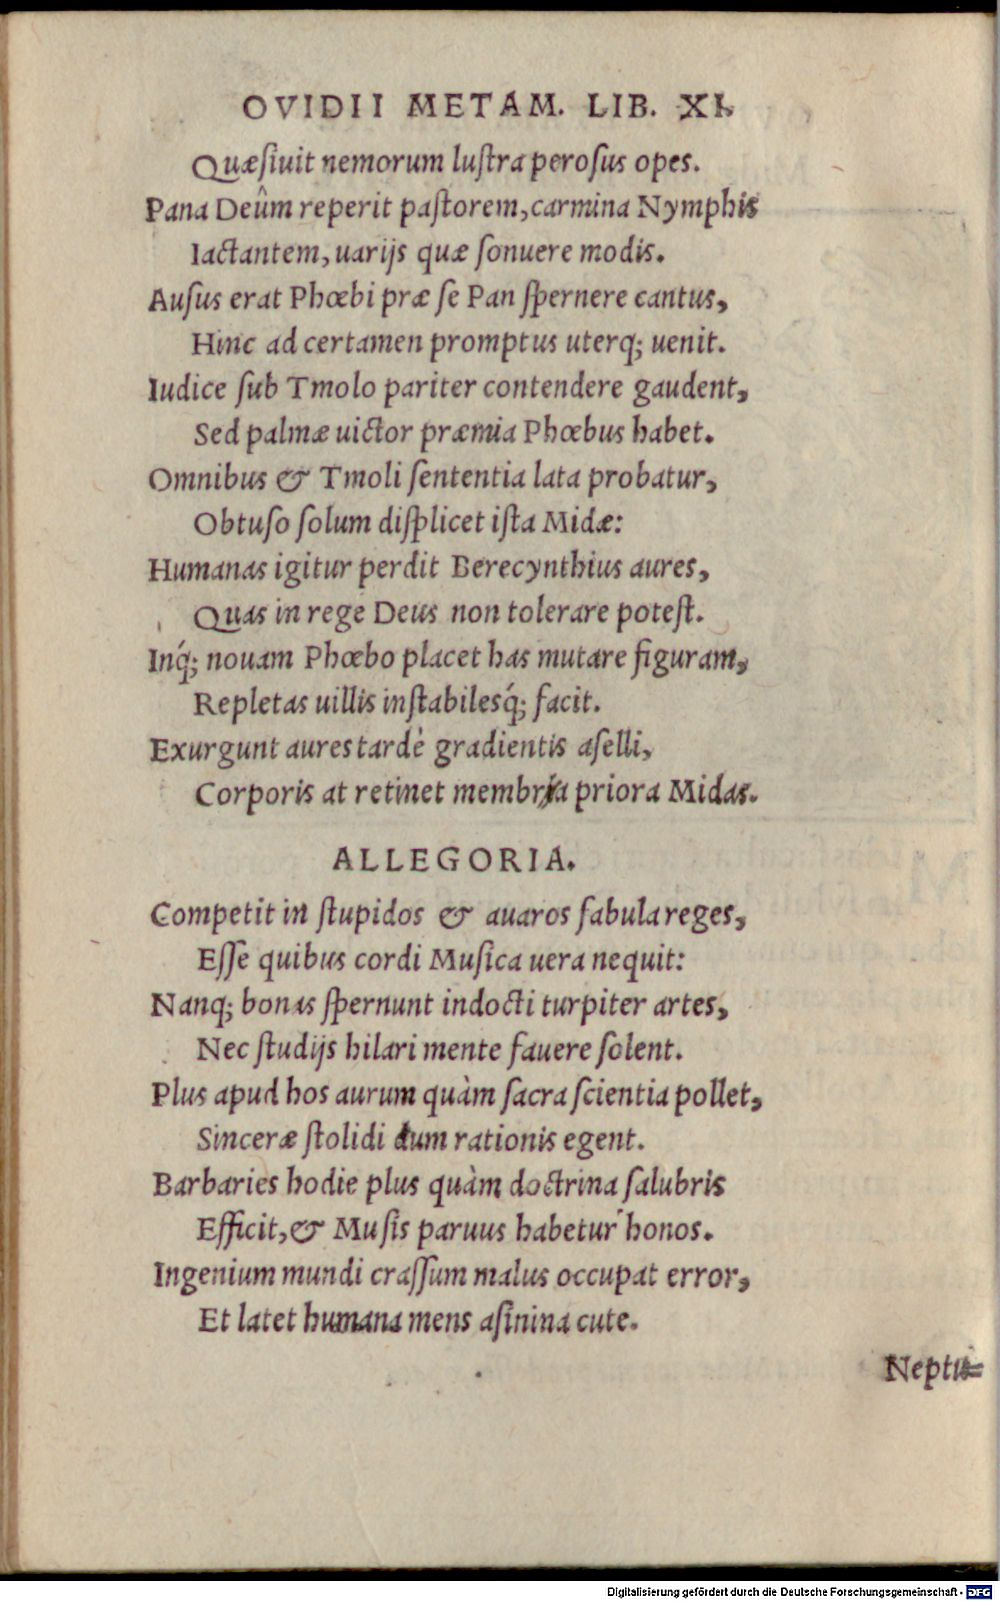 OVIDII METAM. LIB. XI.
Quæſiuit nemorum luſtra peroſus opes.
Pana Deûm reperit paſtorem, carmina Nymphis
Iactantem, uarijs quæ ſonuere modis.
Auſus erat Phœbi præ ſe Pan ſpernere cantus,
Hinc ad certamen promptus uterq; uenit.
Iudice ſub Tmolo pariter contendere gaudent,
Sed palmæ uictor præmia Phœbus habet.
Omnibus & Tmoli ſententia lata probatur,
Obtuſo ſolum diſplicet iſta Midæ:
Humanas igitur perdit Berecynthius aures,
Quas in rege Deus non tolerare poteſt.
Inq́; nouam Phœbo placet has mutare figuram,
Repletas uillis inſtabilesq́; facit.
Exurgunt aures tardè gradientis aſelli,
Corporis at retinet membra priora Midas.
ALLEGORIA.
Competit in ſtupidos & auaros fabula reges,
Eſſe quibus cordi Muſica uera nequit:
Nanq; bonas ſpernunt indocti turpiter artes,
Nec ſtudijs hilari mente fauere ſolent.
Plus apud hos aurum quàm ſacra ſcientia pollet,
Sinceræ ſtolidi dum rationis egent.
Barbaries hodie plus quàm doctrina ſalubris
Efficit, & Muſis paruus habetur honos.
Ingenium mundi craſſum malus occupat error,
Et latet humana mens aſinina cute.
Neptu=
Digitalisierung gefördert durch die Deutsche Forschungsgemeinschaft - DFG